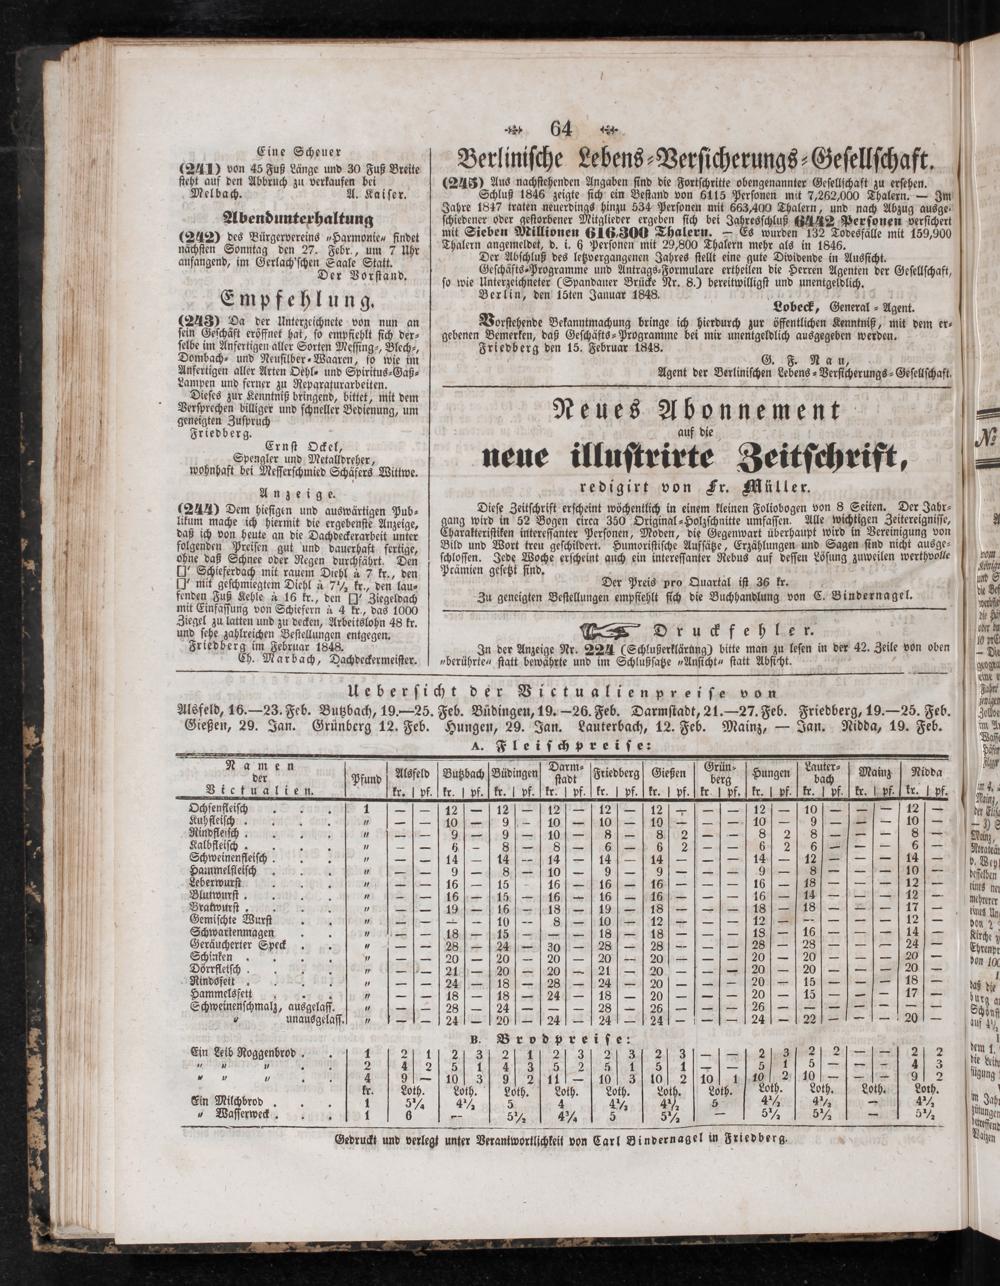 64
Eine Scheuer
(241) von 45 Fuß Länge und 30 Fuß Breite
steht auf den Abbruch zu verkaufen bei
Melbach. A. Kaiser.
Abendunterhaltung
(242) des Bürgervereins „Harmonie“ findet
nächsten Sonntag den 27. Febr., um 7 Uhr
anfangend, im Gerlach'schen Saale Statt.
Der Vorstand.
Empfehlung.
(243) Da der Unterzeichnete von nun an
sein Geschäft eröffnet hat, so empfiehlt sich der-
selbe im Anfertigen aller Sorten Messing-, Blech-,
Dombach- und Neusilber-Waaren, so wie im
Anfertigen aller Arten Oehl- und Spiritus-Gaß-
Lampen und ferner zu Reparaturarbeiten.
Dieses zur Kenntniß bringend, bittet, mit dem
Versprechen billiger und schneller Bedienung, um
geneigten Zuspruch
Friedberg.
Ernst Ockel,
Spengler und Metalldreher,
wohnhaft bei Messerschmied Schäfers Wittwe.
Anzeige.
(244) Dem hiesigen und auswärtigen Pub-
likum mache ich hiermit die ergebenste Anzeige,
daß ich von heute an die Dachdeckerarbeit unter
folgenden Preisen gut und dauerhaft fertige,
ohne daß Schnee oder Regen durchfährt. Den
□' Schieferdach mit rauem Diehl à 7 kr., den
□' mit geschmiegtem Diehl à 7½ kr., den lau-
fenden Fuß Kehle à 16 kr., den □' Ziegeldach
mit Einfassung von Schiefern à 4 kr., das 1000
Ziegel zu latten und zu decken, Arbeitslohn 48 kr.
und sehe zahlreichen Bestellungen entgegen.
Friedberg im Februar 1848.
Ch. Marbach, Dachdeckermeister.
Berlinische Lebens-Versicherungs-Gesellschaft.
(245) Aus nachstehenden Angaben sind die Fortschritte obengenannter Gesellschaft zu ersehen.
Schluß 1846 zeigte sich ein Bestand von 6115 Personen mit 7,262,000 Thalern. — Im
Jahre 1847 traten neuerdings hinzu 534 Personen mit 663,400 Thalern, und nach Abzug ausge-
schiedener oder gestorbener Mitglieder ergeben sich bei Jahresschluß 6442 Personen versichert
mit Sieben Millionen 616,300 Thalern. — Es wurden 132 Todesfälle mit 159,900
Thalern angemeldet, d. i. 6 Personen mit 29,800 Thalern mehr als in 1846.
Der Abschluß des letztvergangenen Jahres stellt eine gute Dividende in Aussicht.
Geschäfts-Programme und Antrags-Formulare ertheilen die Herren Agenten der Gesellschaft,
so wie Unterzeichneter (Spandauer Brücke Nr. 8.) bereitwilligst und unentgeldlich.
Berlin, den 15ten Januar 1848.
Lobeck, General-Agent.
Vorstehende Bekanntmachung bringe ich hierdurch zur öffentlichen Kenntniß, mit dem er-
gebenen Bemerken, daß Geschäfts-Programme bei mir unentgeldlich ausgegeben werden.
Friedberg den 15. Februar 1848.
G. F. Nau,
Agent der Berlinischen Lebens-Versicherungs-Gesellschaft.
Neues Abonnement
auf die
neue illustrirte Zeitschrift,
redigirt von Fr. Müller.
Diese Zeitschrift erscheint wöchentlich in einem kleinen Foliobogen von 8 Seiten. Der Jahr-
gang wird in 52 Bogen circa 350 Original-Holzschnitte umfassen. Alle wichtigen Zeitereignisse,
Charakteristiken interessanter Personen, Moden, die Gegenwart überhaupt wird in Vereinigung von
Bild und Wort treu geschildert. Humoristische Aufsätze, Erzählungen und Sagen sind nicht ausge-
schlossen. Jede Woche erscheint auch ein interessanter Rebus auf dessen Lösung zuweilen werthvolle
Prämien gesetzt sind.
Der Preis pro Quartal ist 36 kr.
Zu geneigten Bestellungen empfiehlt sich die Buchhandlung von C. Bindernagel.
Druckfehler.
In der Anzeige Nr. 224 (Schlußerklärung) bitte man zu lesen in der 42. Zeile von oben
„berührte“ statt bewährte und im Schlußsatze „Ansicht“ statt Absicht.
Uebersicht der Victualienpreise von
Alsfeld, 16.—23. Feb. Butzbach, 19.—25. Feb. Büdingen, 19.—26. Feb. Darmstadt, 21.—27. Feb. Friedberg, 19.—25. Feb.
Gießen, 29. Jan. Grünberg 12. Feb. Hungen, 29. Jan. Lauterbach, 12. Feb. Mainz, — Jan. Nidda, 19. Feb.
A. Fleischpreise:
Namen der Victualien. Pfund Alsfeld Butzbach Büdingen Darm-stadt Friedberg Gießen Grün-berg Hungen Lauter-bach Mainz Nidda
kr. pf. kr. pf. kr. pf. kr. pf. kr. pf. kr. pf. kr. pf. kr. pf. kr. pf. kr. pf. kr. pf.
Ochsenfleisch . . . 1 — — 12 — 12 — 12 — 12 — 12 — — — 12 — 10 — — — 12 —
Kuhfleisch . . . „ — — 10 — 9 — 10 — 10 — 10 — — — 10 — 9 — — — 10 —
Rindfleisch . . . „ — — 9 — 9 — 10 — 8 — 8 2 — — 8 2 8 — — — 8 —
Kalbfleisch . . . „ — — 6 — 8 — 8 — 6 — 6 2 — — 6 2 6 — — — 6 —
Schweinenfleisch . . . „ — — 14 — 14 — 14 — 14 — 14 — — — 14 — 12 — — — 14 —
Hammelfleisch . . . „ — — 9 — 8 — 10 — 9 — 9 — — — 9 — 8 — — — 10 —
Leberwurst . . . „ — — 16 — 15 — 16 — 16 — 16 — — — 16 — 18 — — — 12 —
Blutwurst . . . „ — — 16 — 15 — 16 — 16 — 16 — — — 16 — 14 — — — 12 —
Bratwurst . . . „ — — 19 — 16 — 18 — 19 — 18 — — — 18 — 18 — — — 17 —
Gemischte Wurst . . „ — — — — 10 — 8 — 10 — 12 — — — 12 — — — — — 12 —
Schwartenmagen . . „ — — 18 — 15 — — — 18 — 18 — — — 18 — 16 — — — 14 —
Geräucherter Speck . . „ — — 28 — 24 — 30 — 28 — 28 — — — 28 — 28 — — — 24 —
Schinken . . . „ — — 20 — 20 — 20 — 20 — 20 — — — 20 — 20 — — — 20 —
Dörrfleisch . . . „ — — 21 — 20 — 20 — 21 — 20 — — — 20 — 20 — — — 20 —
Rindsfett . . . „ — — 24 — 18 — 28 — 24 — 20 — — — 20 — 15 — — — 18 —
Hammelsfett . . . „ — — 18 — 18 — 24 — 18 — 20 — — — 20 — 15 — — — 17 —
Schweinenschmalz, ausgelass. „ — — 28 — 24 — — — 28 — 26 — — — 26 — — — — — —
„ unausgelass. „ — — 24 — 20 — 24 — 24 — 24 — — — 24 — 22 — — — 20 —
B. Brodpreise:
Ein Leib Roggenbrod . . 1 2 1 2 3 2 1 2 3 2 3 2 3 — — 2 3 2 2 — — 2 2
„ „ „ 2 4 2 5 1 4 3 5 2 5 1 5 1 — — 5 1 5 — — — 4 3
„ „ „ 4 9 — 10 3 9 2 11 — 10 3 10 2 10 1 10 2 10 — — — 9 2
kr. Loth. Loth. Loth. Loth. Loth. Loth. Loth. Loth. Loth. Loth. Loth.
Ein Milchbrod . . . 1 5¼ 4½ 5 4 4½ 4½ 5 4½ 4½ — 4½
„ Wasserweck . . . 1 6 — 5½ 4¾ 5 5½ — 5½ 5½ — 5½
Gedruckt und verlegt unter Verantwortlichkeit von Carl Bindernagel in Friedberg.